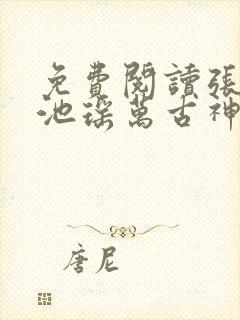 免費閱讀張
池瑤萬古神
唐尼